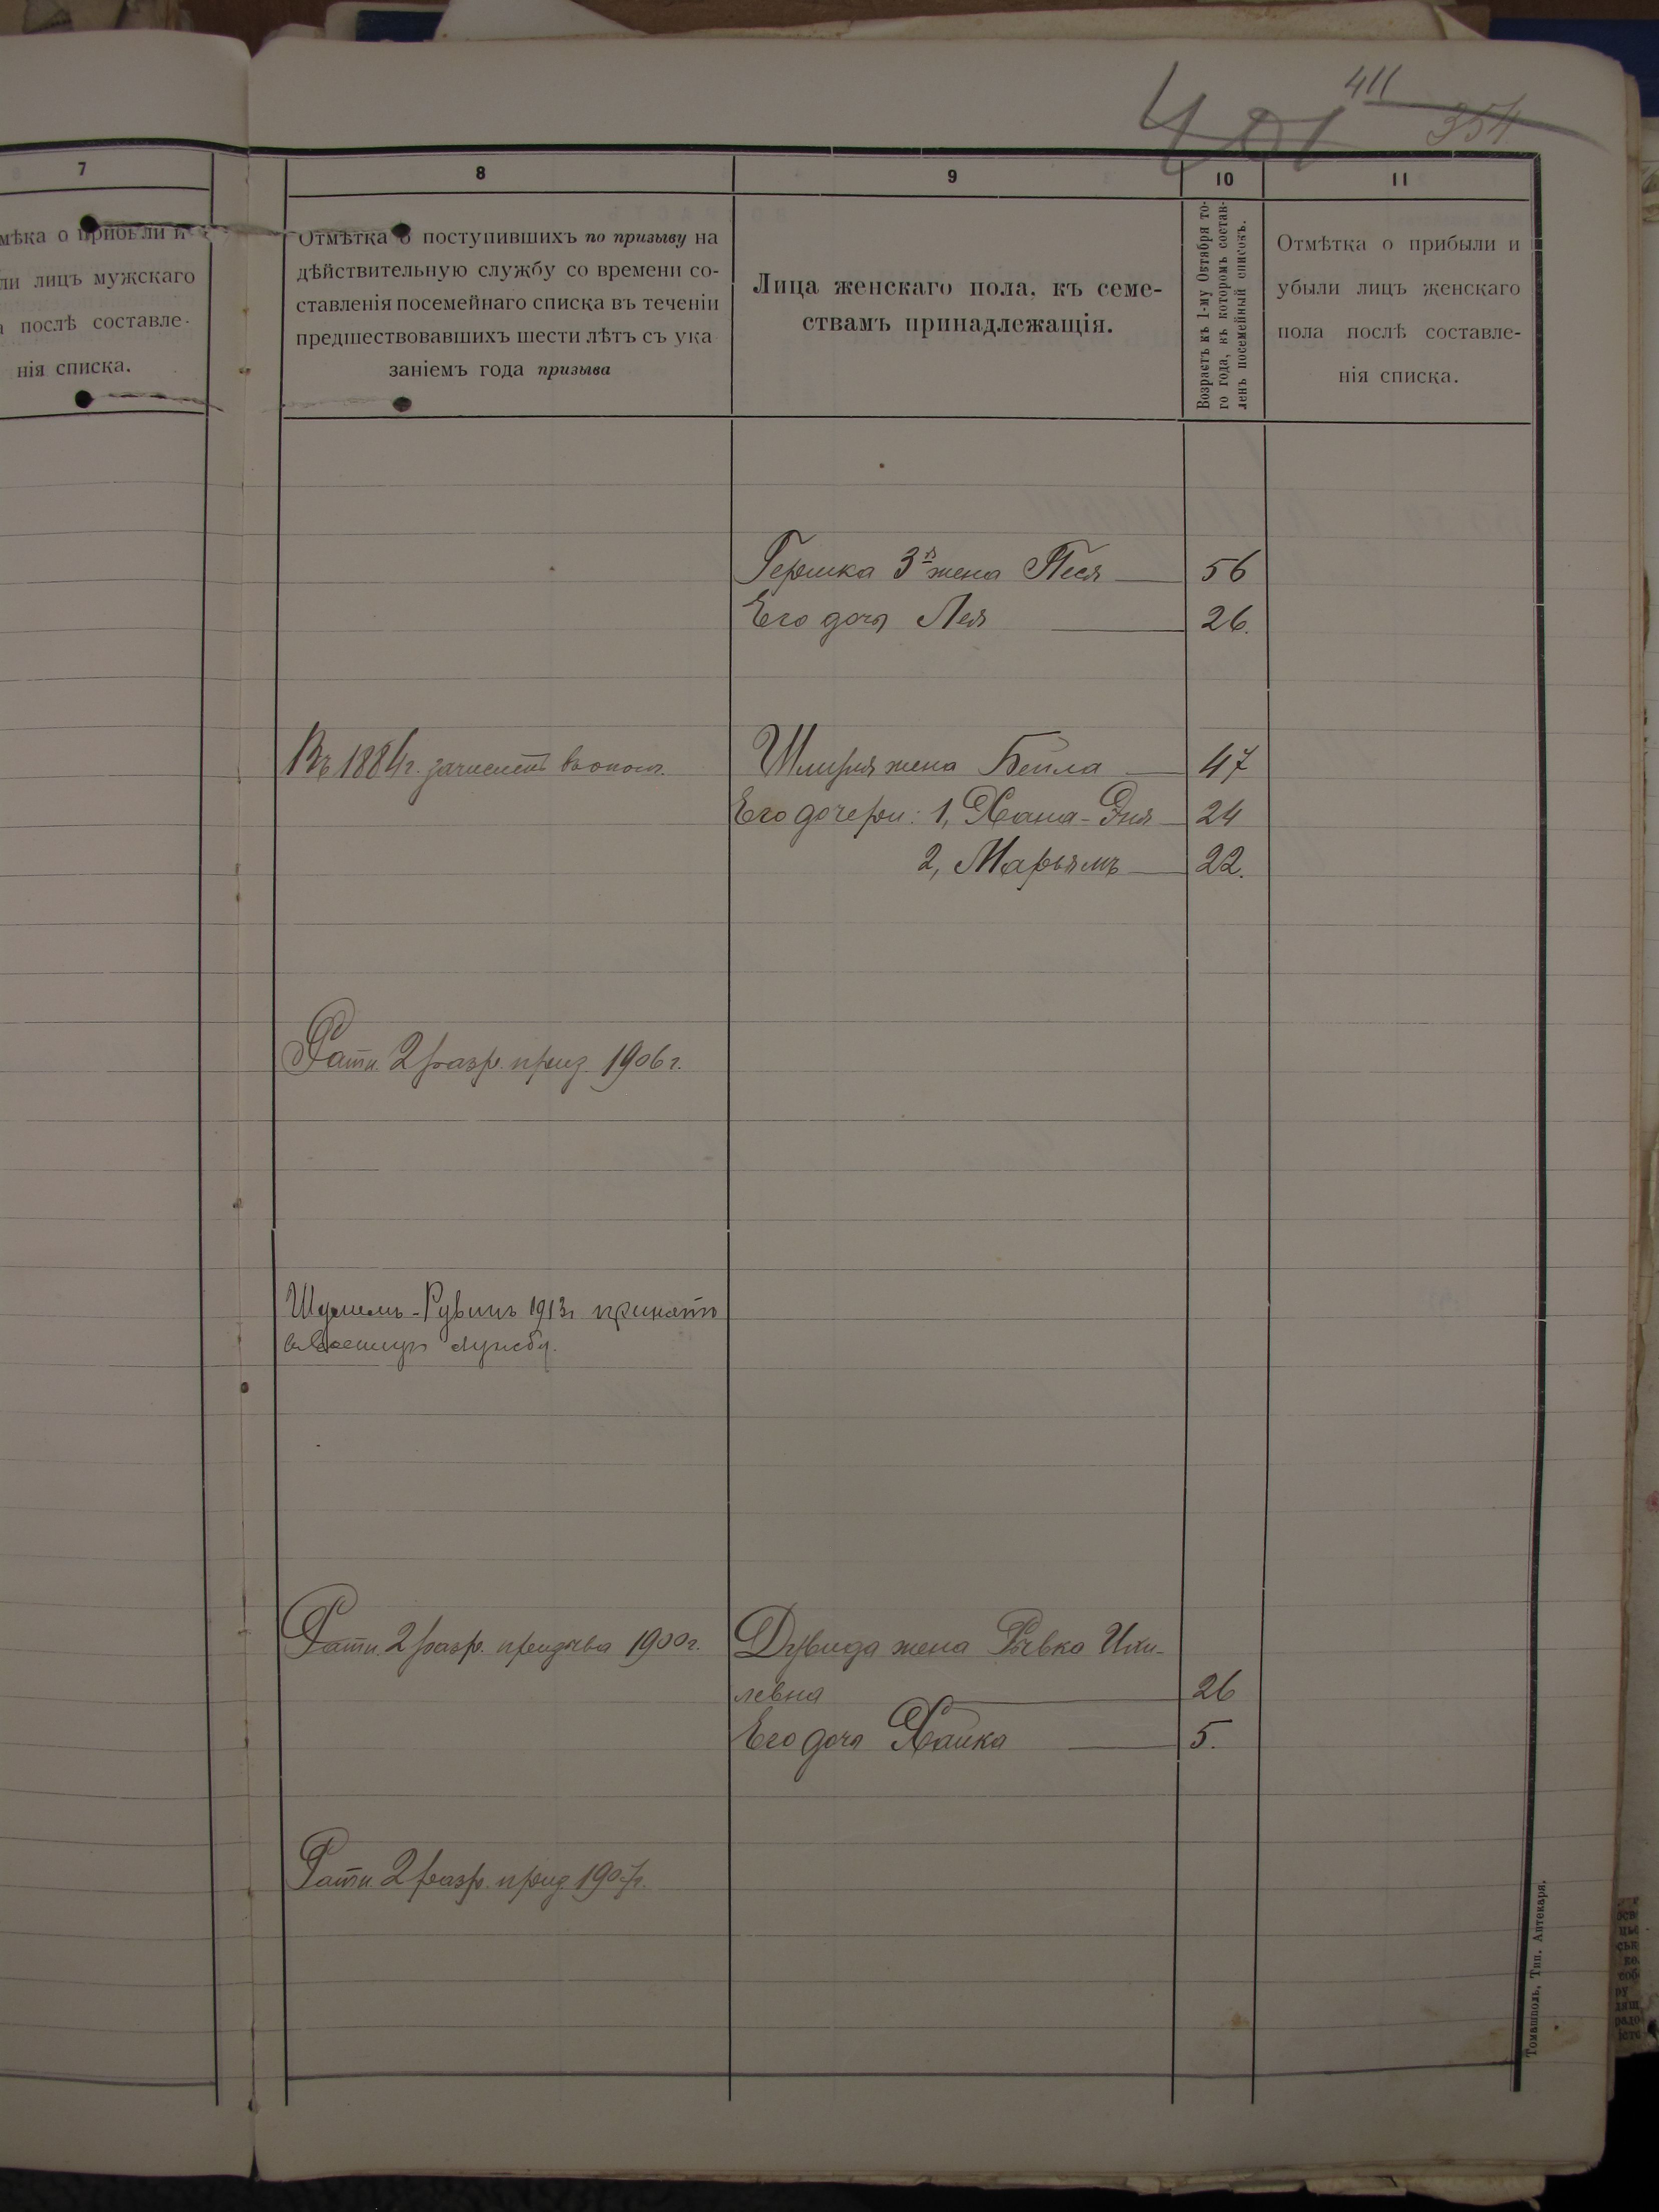 411
401
354
7
8
9
10
11
мѣка о прибыли и
ли лицъ мужскаго
послѣ составле-
нія списка.
Отмѣтка о поступившихъ по призыву на
дѣйствительную службу со времени со-
ставленія посемейнаго списка въ теченіи
предшествовавшихъ шести лѣтъ съ ука
заніемъ года призыва
Лица женскаго пола, къ семе-
ствамъ принадлежащія.
Возрастъ къ 1-му Октября то-
го года, въ которомъ состав-
ленъ посемейный списокъ.
Отмѣтка о прибыли и
убыли лицъ женскаго
пола послѣ составле-
нія списка.
Гершка 3я жена Песя 56
Его дочь Лея 26.
Въ 1884г. зачисленъ в ополч.
Шмиля жена Бейла 47
Его дочери: 1, Хана-Эня 24
2, Марьямъ 22.
Ратн. 2 разр. приз. 1906 г.
Шулимъ-Рувинъ 1913г принятъ
Ратн. 2 разр. призыва 1900г.
Дувида жена Рывка Ихи-
левна 26
Его дочь Хайка 5.
Ратн. 2 разр. приз. 1907г.
Томашполь, Тип. Аптекаря.